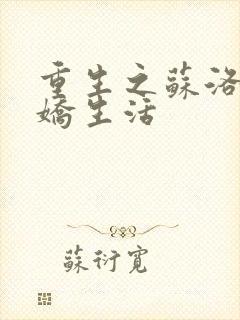 重生之蘇洛
嬌生活
蘇衍寬